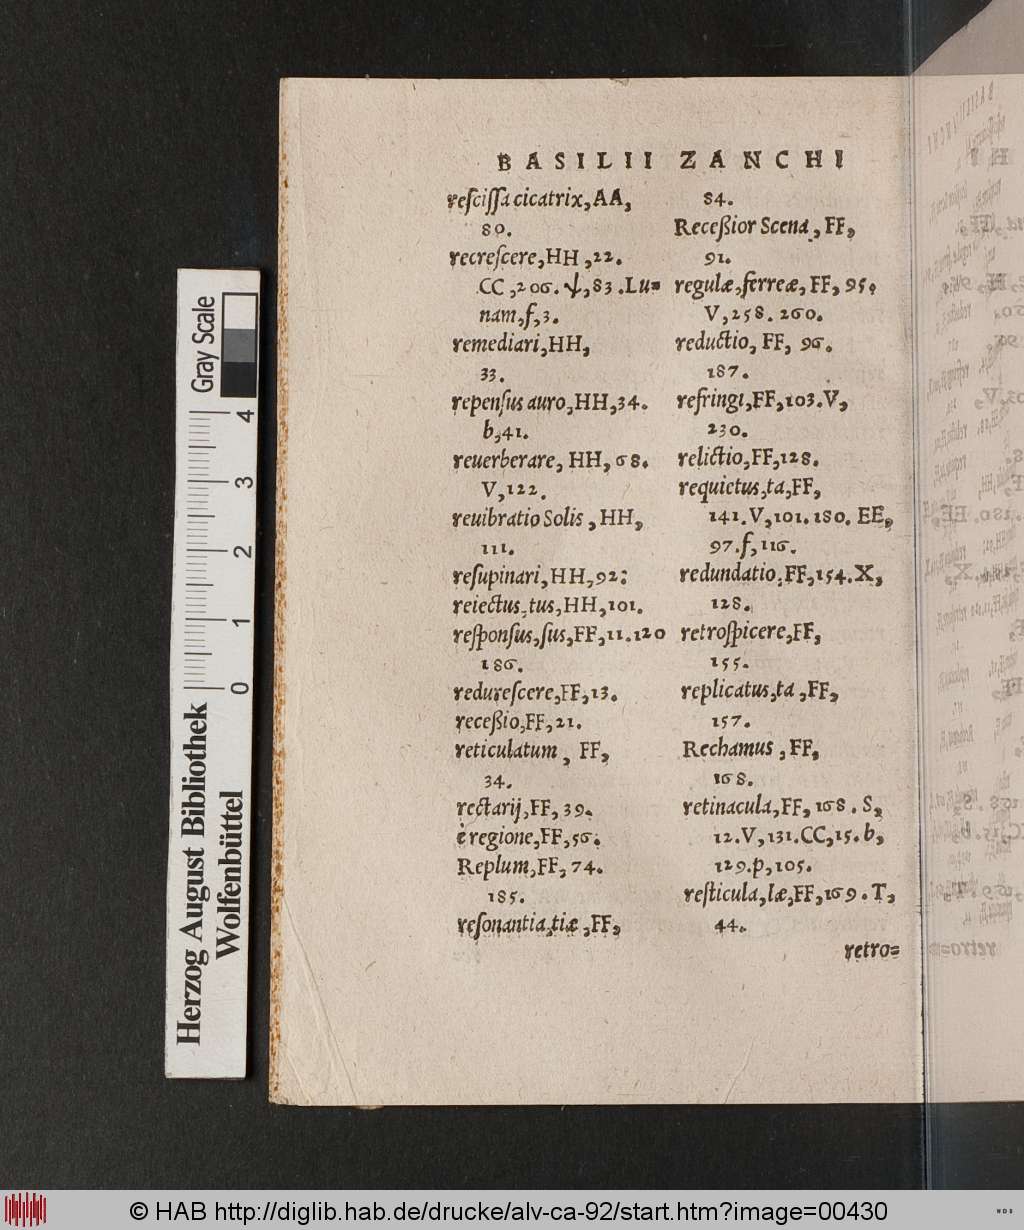 BASILII ZANCHI
reſciſſa cicatrix, AA,
80.
recreſcere, HH, 22.
CC, 206. ψ, 83. Lu=
nam, f, 3.
remediari, HH,
33.
repenſus auro, HH, 34.
b, 41.
reuerberare, HH, 68.
V, 122.
reuibratio Solis, HH,
111.
reſupinari, HH, 92:
reiectus, tus, HH, 101.
reſponſus, ſus, FF, 11. 120
186.
redureſcere, FF, 13.
receßio, FF, 21.
reticulatum, FF,
34.
rectarij, FF, 39.
è regione, FF, 56.
Replum, FF, 74.
185.
reſonantia, tiæ, FF,
84.
Receßior Scena, FF,
91.
regulæ, ferreæ, FF, 95.
V, 258. 260.
reductio, FF, 96.
187.
refringi, FF, 103. V,
230.
relictio, FF, 128.
requietus, ta, FF,
141. V, 101. 180. EE,
97. f, 116.
redundatio, FF, 154. X,
128.
retroſpicere, FF,
155.
replicatus, ta, FF,
157.
Rechamus, FF,
168.
retinacula, FF, 168. S,
12. V, 131. CC, 15. b,
129. p, 105.
reſticula, læ, FF, 169. T,
44.
retro=
Gray Scale
0 1 2 3 4
Herzog August Bibliothek
Wolfenbüttel
© HAB http://diglib.hab.de/drucke/alv-ca-92/start.htm?image=00430